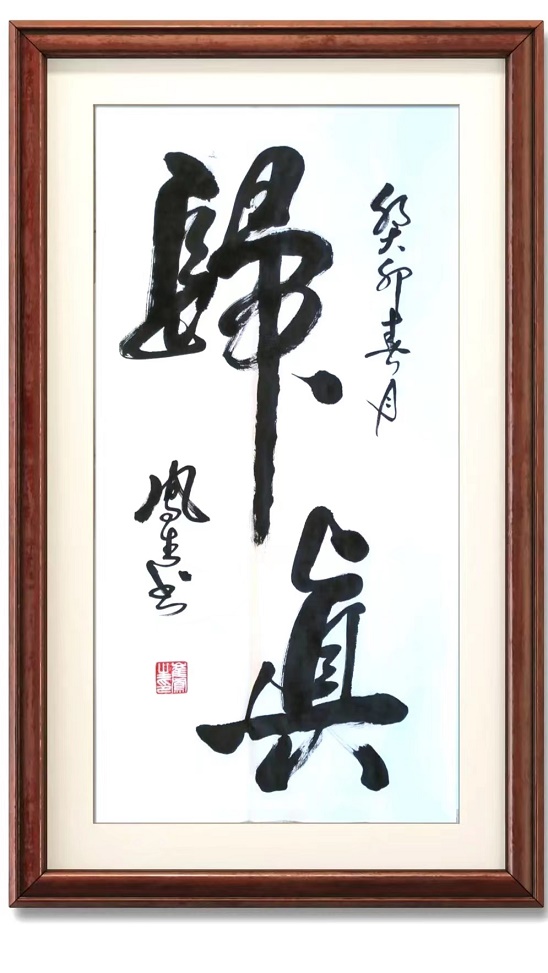 癸卯春月
歸真
鳳生书